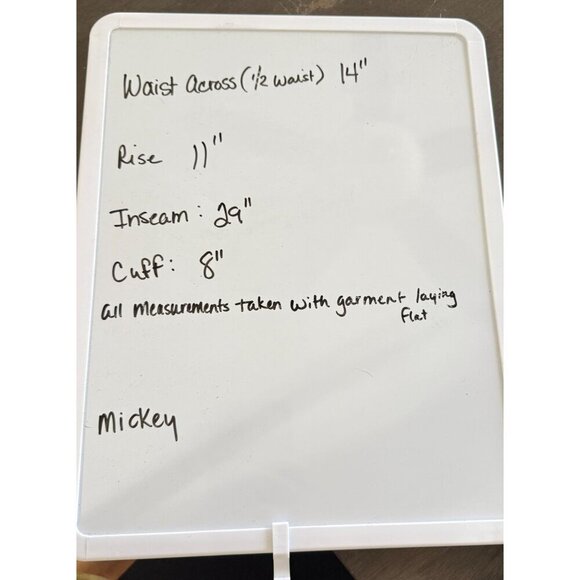 Waist Across (1/2 waist) 14"
Rise 11"
Inseam: 29"
Cuff: 8"
all measurements taken with garment laying
flat
Mickey